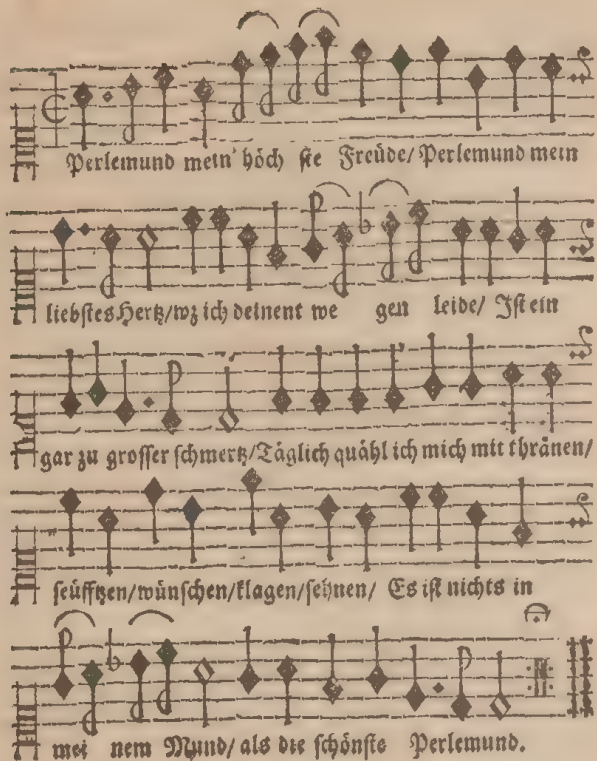 Perlemund mein' höch ste Freüde/ Perlemund mein
liebstes Hertz/ wz ich deinent we gen leide/ Ist ein
gar zu grosser schmertz/ Täglich quähl ich mich mit thränen/
seüfftzen/ wünschen/ klagen/ sehnen/ Es ist nichts in
mei nem Mund/ als die schönste Perlemund.